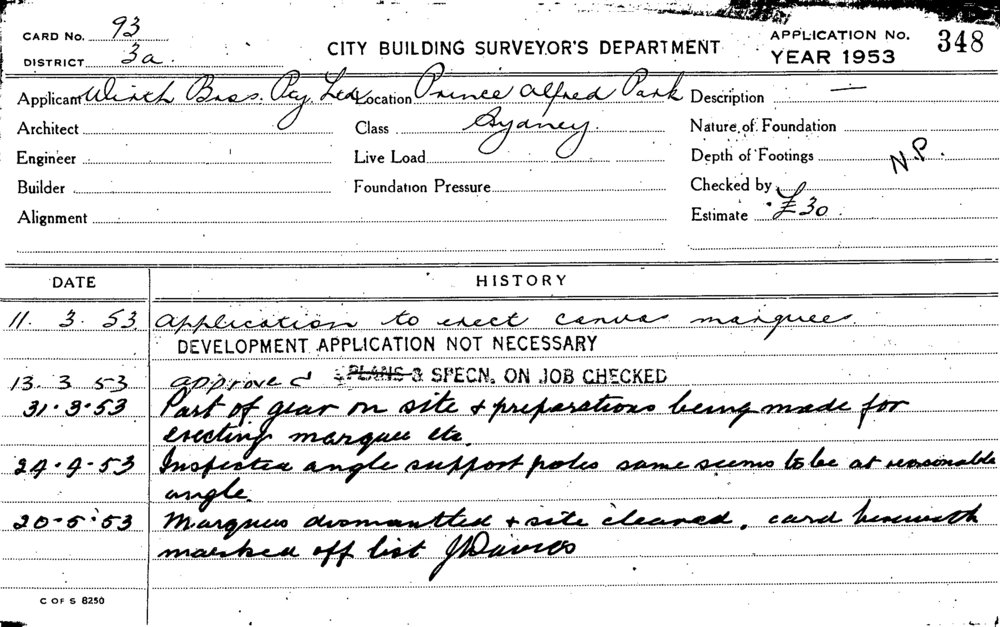 CARD No. 93
DISTRICT 3a.
CITY BUILDING SURVEYOR'S DEPARTMENT
APPLICATION No. 348
YEAR 1953
Applicant Wirth Bros. Pty. Ltd. Location Prince Alfred Park Description —
Architect Class Sydney. Nature of Foundation
Engineer Live Load Depth of Footings N.P.
Builder Foundation Pressure Checked by
Alignment Estimate £30.
DATE HISTORY
11. 3. 53 Application to erect canvas marquee.
DEVELOPMENT APPLICATION NOT NECESSARY
13. 3. 53 approved PLANS & SPECN. ON JOB CHECKED
31.3.53 Part of gear on site & preparations being made for
erecting marquee etc.
29.4.53 Inspected angle support poles same seems to be at reasonable
angle.
20-5-53 Marquees dismantled & site cleared. card herewith
marked off list J Davies
C OF S 8250